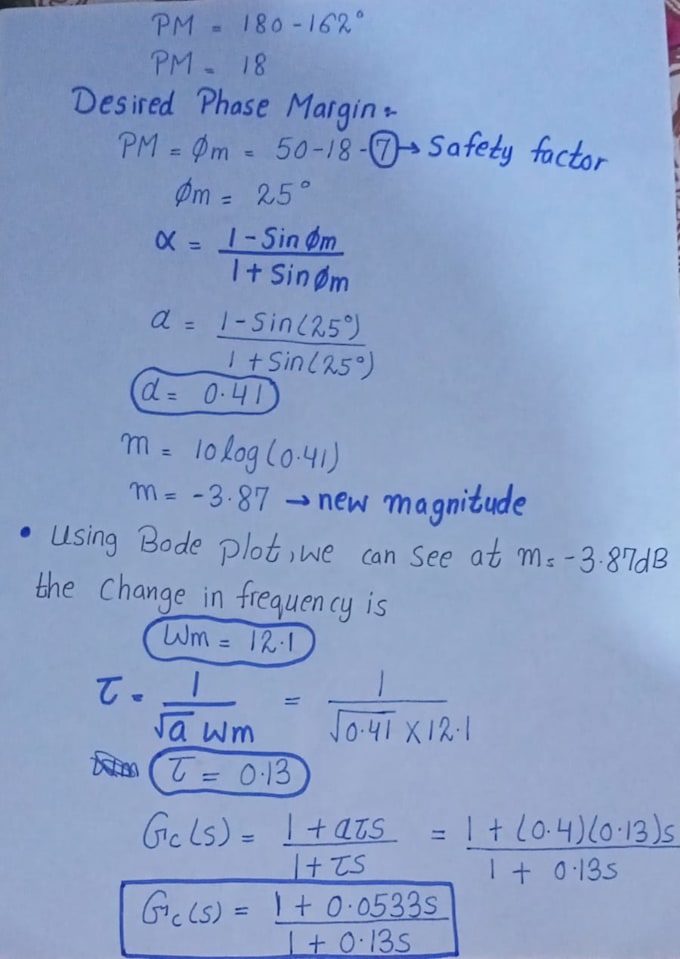 PM = 180 - 162°
PM = 18
Desired Phase Margin:-
PM = Øm = 50-18-7 → Safety factor
Øm = 25°
α = 1 - Sin Øm / 1 + Sin Øm
a = 1 - Sin(25°) / 1 + Sin(25°)
a = 0.41
m = 10 log(0.41)
m = -3.87 → new magnitude
• Using Bode plot, we can see at m = -3.87dB
the Change in frequency is
Wm = 12.1
τ = 1 / √a Wm = 1 / √0.41 × 12.1
τ = 0.13
Gc(s) = 1 + aτs / 1 + τs = 1 + (0.4)(0.13)s / 1 + 0.13s
Gc(s) = 1 + 0.0533s / 1 + 0.13s